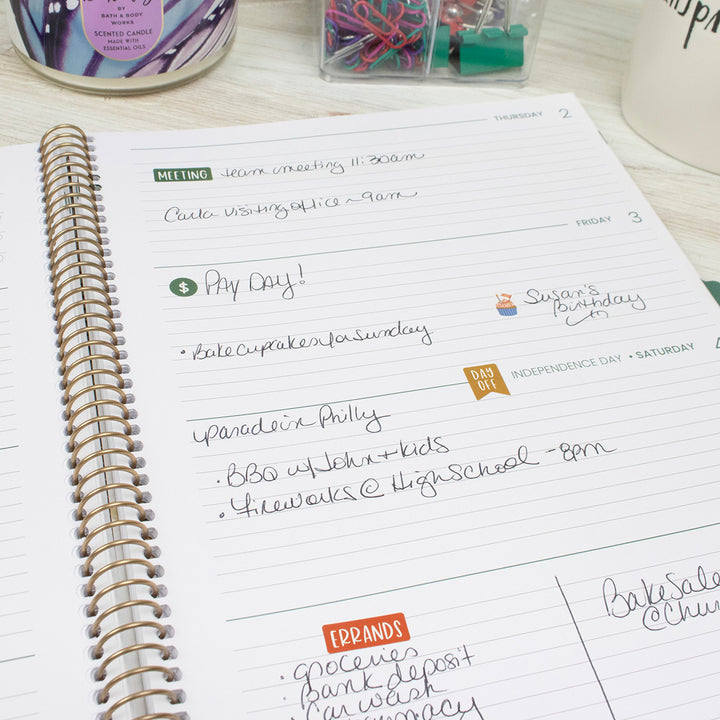 BY
BATH & BODY
WORKS
SCENTED CANDLE
MADE WITH
ESSENTIAL OILS
THURSDAY 2
MEETING team meeting 11:30am
Carla visiting office ~ 9am
FRIDAY 3
$ PAY DAY!
Susan's
Birthday
• Bake cupcakes for Sunday
DAY
OFF
INDEPENDENCE DAY • SATURDAY
parade in Philly
• BBQ w/ John + kids
• Fireworks @ High School - 8pm
ERRANDS
• groceries
• Bank deposit
• Car wash
Bake Sale
@